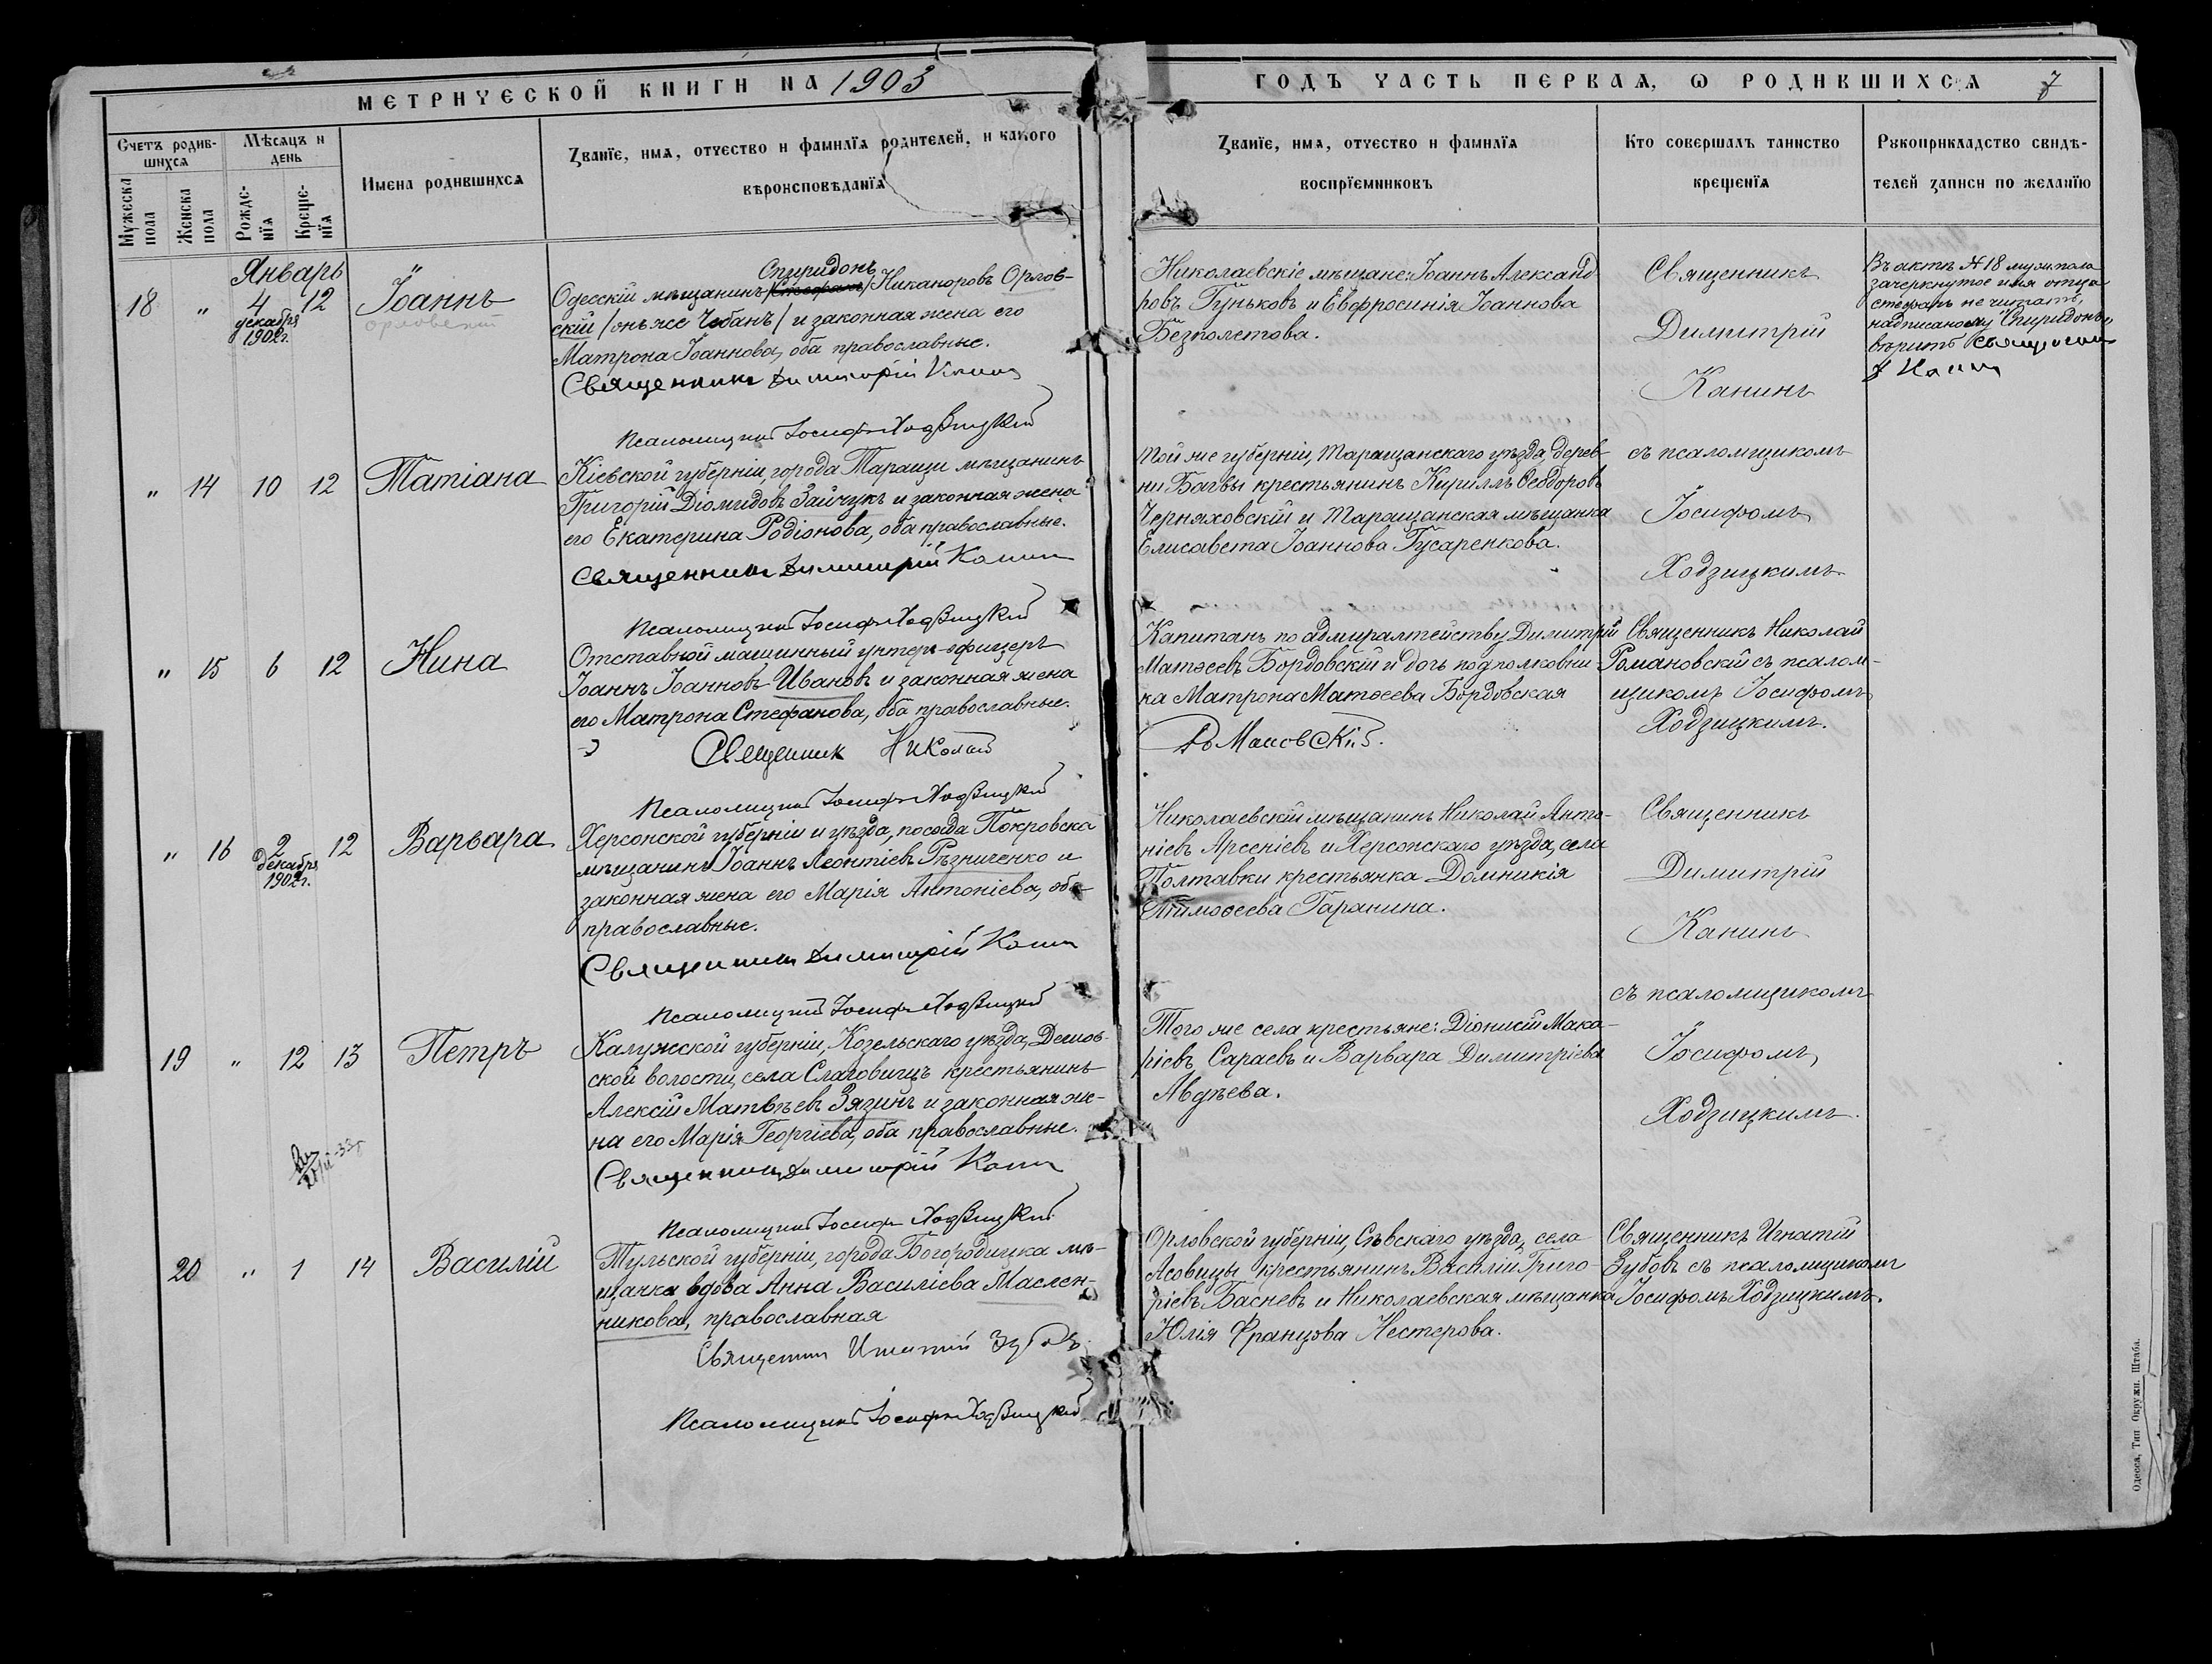 МЕТРИЧЕСКОЙ КНИГИ НА 1903
ГОДЪ ЧАСТЬ ПЕРВАЯ, Ѡ РОДИВШИХСЯ 7
Счетъ родив-
шихся
Мужеска пола
Женска пола
Мѣсяцъ и
день
Рожде-
нїя
Креще-
нїя
Имена родившихся
Званїе, имя, отчество и фамилїя родителей, и какого
вѣроисповѣданїя
Званїе, имя, отчество и фамилїя
воспрїемниковъ
Кто совершалъ таинство
крещенїя
Рукоприкладство свидѣ-
телей записи по желанїю
Январь
18 " 4 12 Іоаннъ
декабря
1902г.
орловский
Спиридонъ
Одесскій мѣщанинъ Стефанъ Никаноровъ Орлов-
скій /онъ же Чобанъ/ и законная жена его
Матрона Іоаннова, оба православные.
Священникъ Димитрій Канинъ
Псаломщикъ Іосифъ Ходзицкій
Николаевскіе мѣщане: Іоаннъ Александ-
ровъ Гуньковъ и Евфросинія Іоаннова
Безполетова.
Священникъ
Димитрій
Канинъ
Въ актѣ № 18 муж. пола
зачеркнутое имя отца
стефанъ не читать,
надписаному "Спиридонъ"
вѣрить Священник
Канин
" 14 10 12 Татіана
Кіевской губерніи, города Таращи мѣщанинъ
Григорій Діомидовъ Зайчукъ и законная жена
его Екатерина Родіонова, оба православные.
Священникъ Димитрій Канинъ
Псаломщикъ Іосифъ Ходзицкій
Той же губерніи, Таращанскаго уѣзда, дерев-
ни Багвы крестьянинъ Кириллъ Ѳеодоровъ
Черняховскій и Таращанская мѣщанка
Елисавета Іоаннова Гусаренкова.
съ псаломщикомъ
Іосифомъ
Ходзицкимъ.
" 15 6 12 Нина
Отставной машинный унтеръ-офицеръ
Іоаннъ Іоанновъ Ивановъ и законная жена
его Матрона Стефанова, оба православные.
Священник Николай
Романовскій.
Псаломщикъ Іосифъ Ходзицкій
Капитанъ по адмиралтейству Димитрій
Матѳеевъ Бордовскій и дочь подполковни-
ка Матрона Матѳеева Бордовская
Священникъ Николай
Романовскій съ псалом-
щикомъ Іосифомъ
Ходзицкимъ.
" 16 2 12 Варвара
декабря
1902г.
Херсонской губерніи и уѣзда, посада Покровска
мѣщанинъ Іоаннъ Леонтіевъ Рѣзниченко и
законная жена его Марія Антоніева, оба
православные.
Священникъ Димитрій Канинъ
Псаломщикъ Іосифъ Ходзицкій
Николаевскій мѣщанинъ Николай Анто-
ніевъ Арсеніевъ и Херсонскаго уѣзда, села
Полтавки крестьянка Домникія
Тимоѳеева Гаранина.
Священникъ
Димитрій
Канинъ
19 " 12 13 Петръ
Калужской губерніи, Козельскаго уѣзда,
ской волости, села Слаговищъ крестьянинъ
Алексій Матвѣевъ Зязинъ и законная же-
на его Марія Георгіева, оба православные.
Священникъ Димитрій Канинъ
Псаломщикъ Іосифъ Ходзицкій
Того же села крестьяне: Діонисій Мака-
ріевъ Сараевъ и Варвара Димитріева
Авдѣева.
съ псаломщикомъ
Іосифомъ
Ходзицкимъ.
20 " 1 14 Василій
Тульской губерніи, города Богородицка мѣ-
щанка вдова Анна Василіева Маслен-
никова, православная
Священник Игнатій Зубовъ
Псаломщикъ Іосифъ Ходзицкій
Орловской губерніи, Сѣвскаго уѣзда, села
Асовицы крестьянинъ Василій Григо-
ріевъ Басневъ и Николаевская мѣщанка
Юлія Францова Нестерова.
Священникъ Игнатій
Зубовъ съ псаломщикомъ
Іосифомъ Ходзицкимъ.
Одесса, Тип Окружн. Штаба.